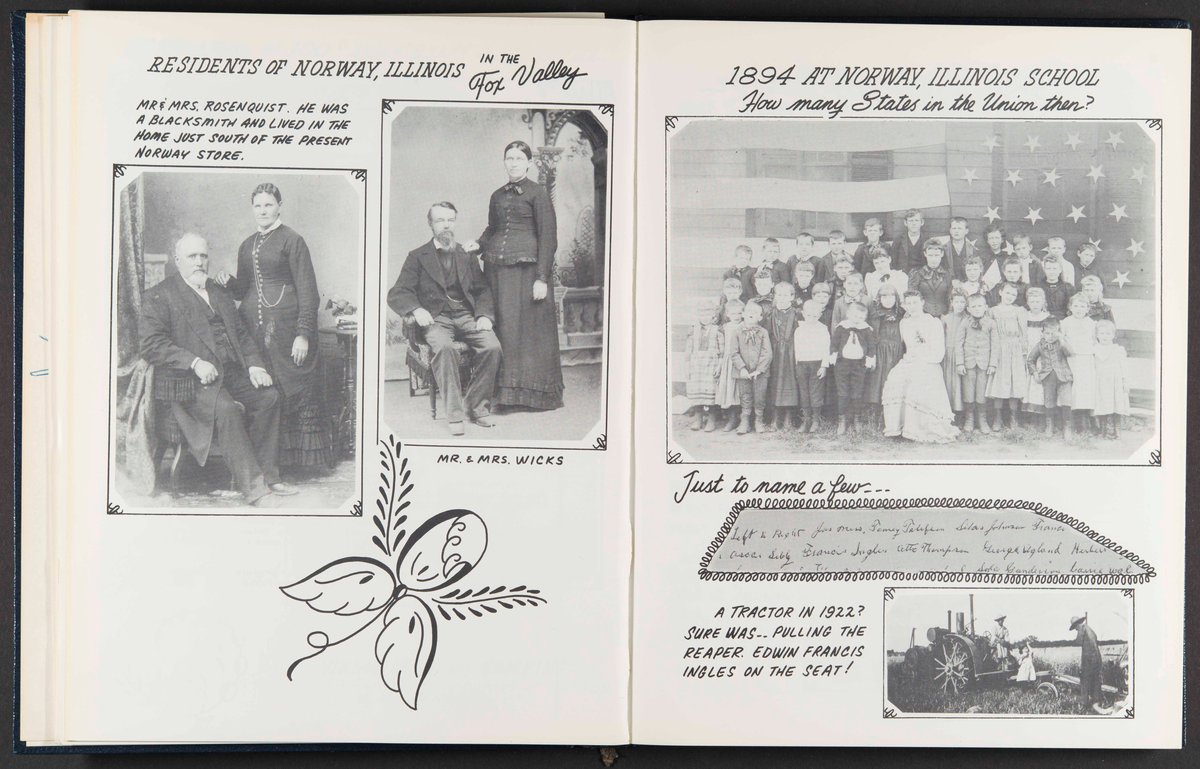 RESIDENTS OF NORWAY, ILLINOIS IN THE Fox Valley
MR & MRS. ROSENQUIST. HE WAS
A BLACKSMITH AND LIVED IN THE
HOME JUST SOUTH OF THE PRESENT
NORWAY STORE.
MR. & MRS. WICKS
1894 AT NORWAY, ILLINOIS SCHOOL
How many States in the Union then?
Just to name a few---
Left to Right Silas Johnson Francis
Oscar Francis Ingles Otto Thompson George
Gunderson Carrie
A TRACTOR IN 1922?
SURE WAS-- PULLING THE
REAPER. EDWIN FRANCIS
INGLES ON THE SEAT!